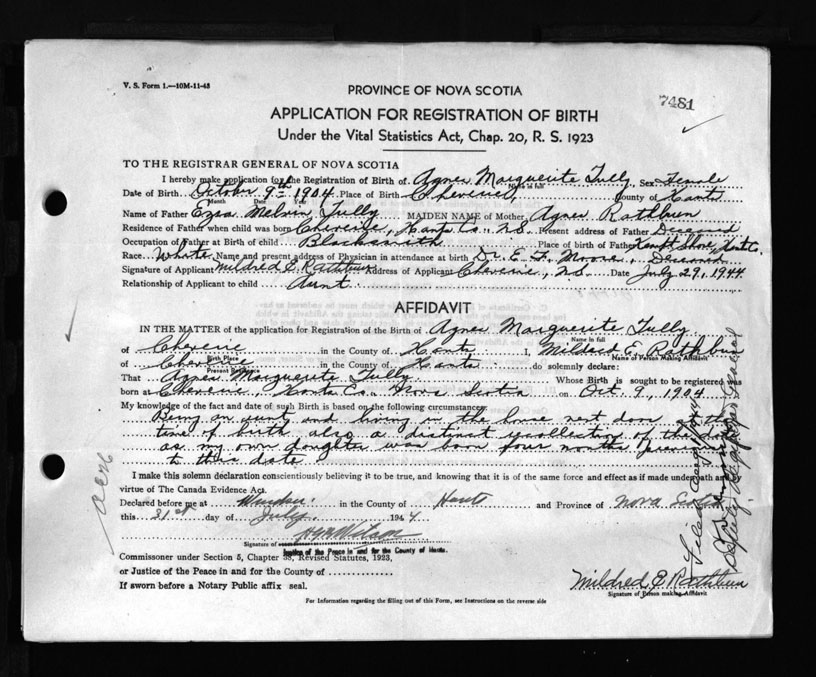 V. S. Form 1.—10M-11-43
PROVINCE OF NOVA SCOTIA
7481
APPLICATION FOR REGISTRATION OF BIRTH
Under the Vital Statistics Act, Chap. 20, R. S. 1923
TO THE REGISTRAR GENERAL OF NOVA SCOTIA
I hereby make application for the Registration of Birth of Agnes Marguerite Tully, Sex Female
Name in full
Date of Birth October 9th 1904 Place of Birth Cheverie, County of Hants
Month Date Year
Name of Father Ezra Melvin Tully MAIDEN NAME of Mother, Agnes Rathbun
Residence of Father when child was born Cheverie, Hants Co. N.S. Present address of Father Deceased
Occupation of Father at Birth of child Blacksmith Place of birth of Father Kempt Shore, Hants Co.
Race White Name and present address of Physician in attendance at birth Dr. E. F. Moore, Deceased
Signature of Applicant Mildred E. Rathbun Address of Applicant Cheverie, N.S. Date July 29, 1944
Relationship of Applicant to child Aunt
AFFIDAVIT
IN THE MATTER of the application for Registration of the Birth of Agnes Marguerite Tully
Name in full
of Cheverie in the County of Hants I, Mildred E. Rathbun
Birth Place Name of Person Making Affidavit
of Cheverie in the County of Hants do solemnly declare:
Present Residence
That Agnes Marguerite Tully Whose Birth is sought to be registered was
born at Cheverie, Hants Co., Nova Scotia on Oct. 9, 1904
My knowledge of the fact and date of such Birth is based on the following circumstances:
Being an aunt, and living in the house next door at the
time of birth also a distinct recollection of the date
as my own daughter was born four months previous
to this date
I make this solemn declaration conscientiously believing it to be true, and knowing that it is of the same force and effect as if made under oath and
virtue of The Canada Evidence Act.
Declared before me at Windsor in the County of Hants and Province of Nova Scotia
this 31st day of July 1944
Signature of
Justice of the Peace in and for the County of Hants.
Commissioner under Section 5, Chapter 38, Revised Statutes, 1923,
or Justice of the Peace in and for the County of
If sworn before a Notary Public affix seal.
Mildred E Rathbun
Signature of Person making Affidavit
For Information regarding the filling out of this Form, see Instructions on the reverse side
Deputy Registrar General